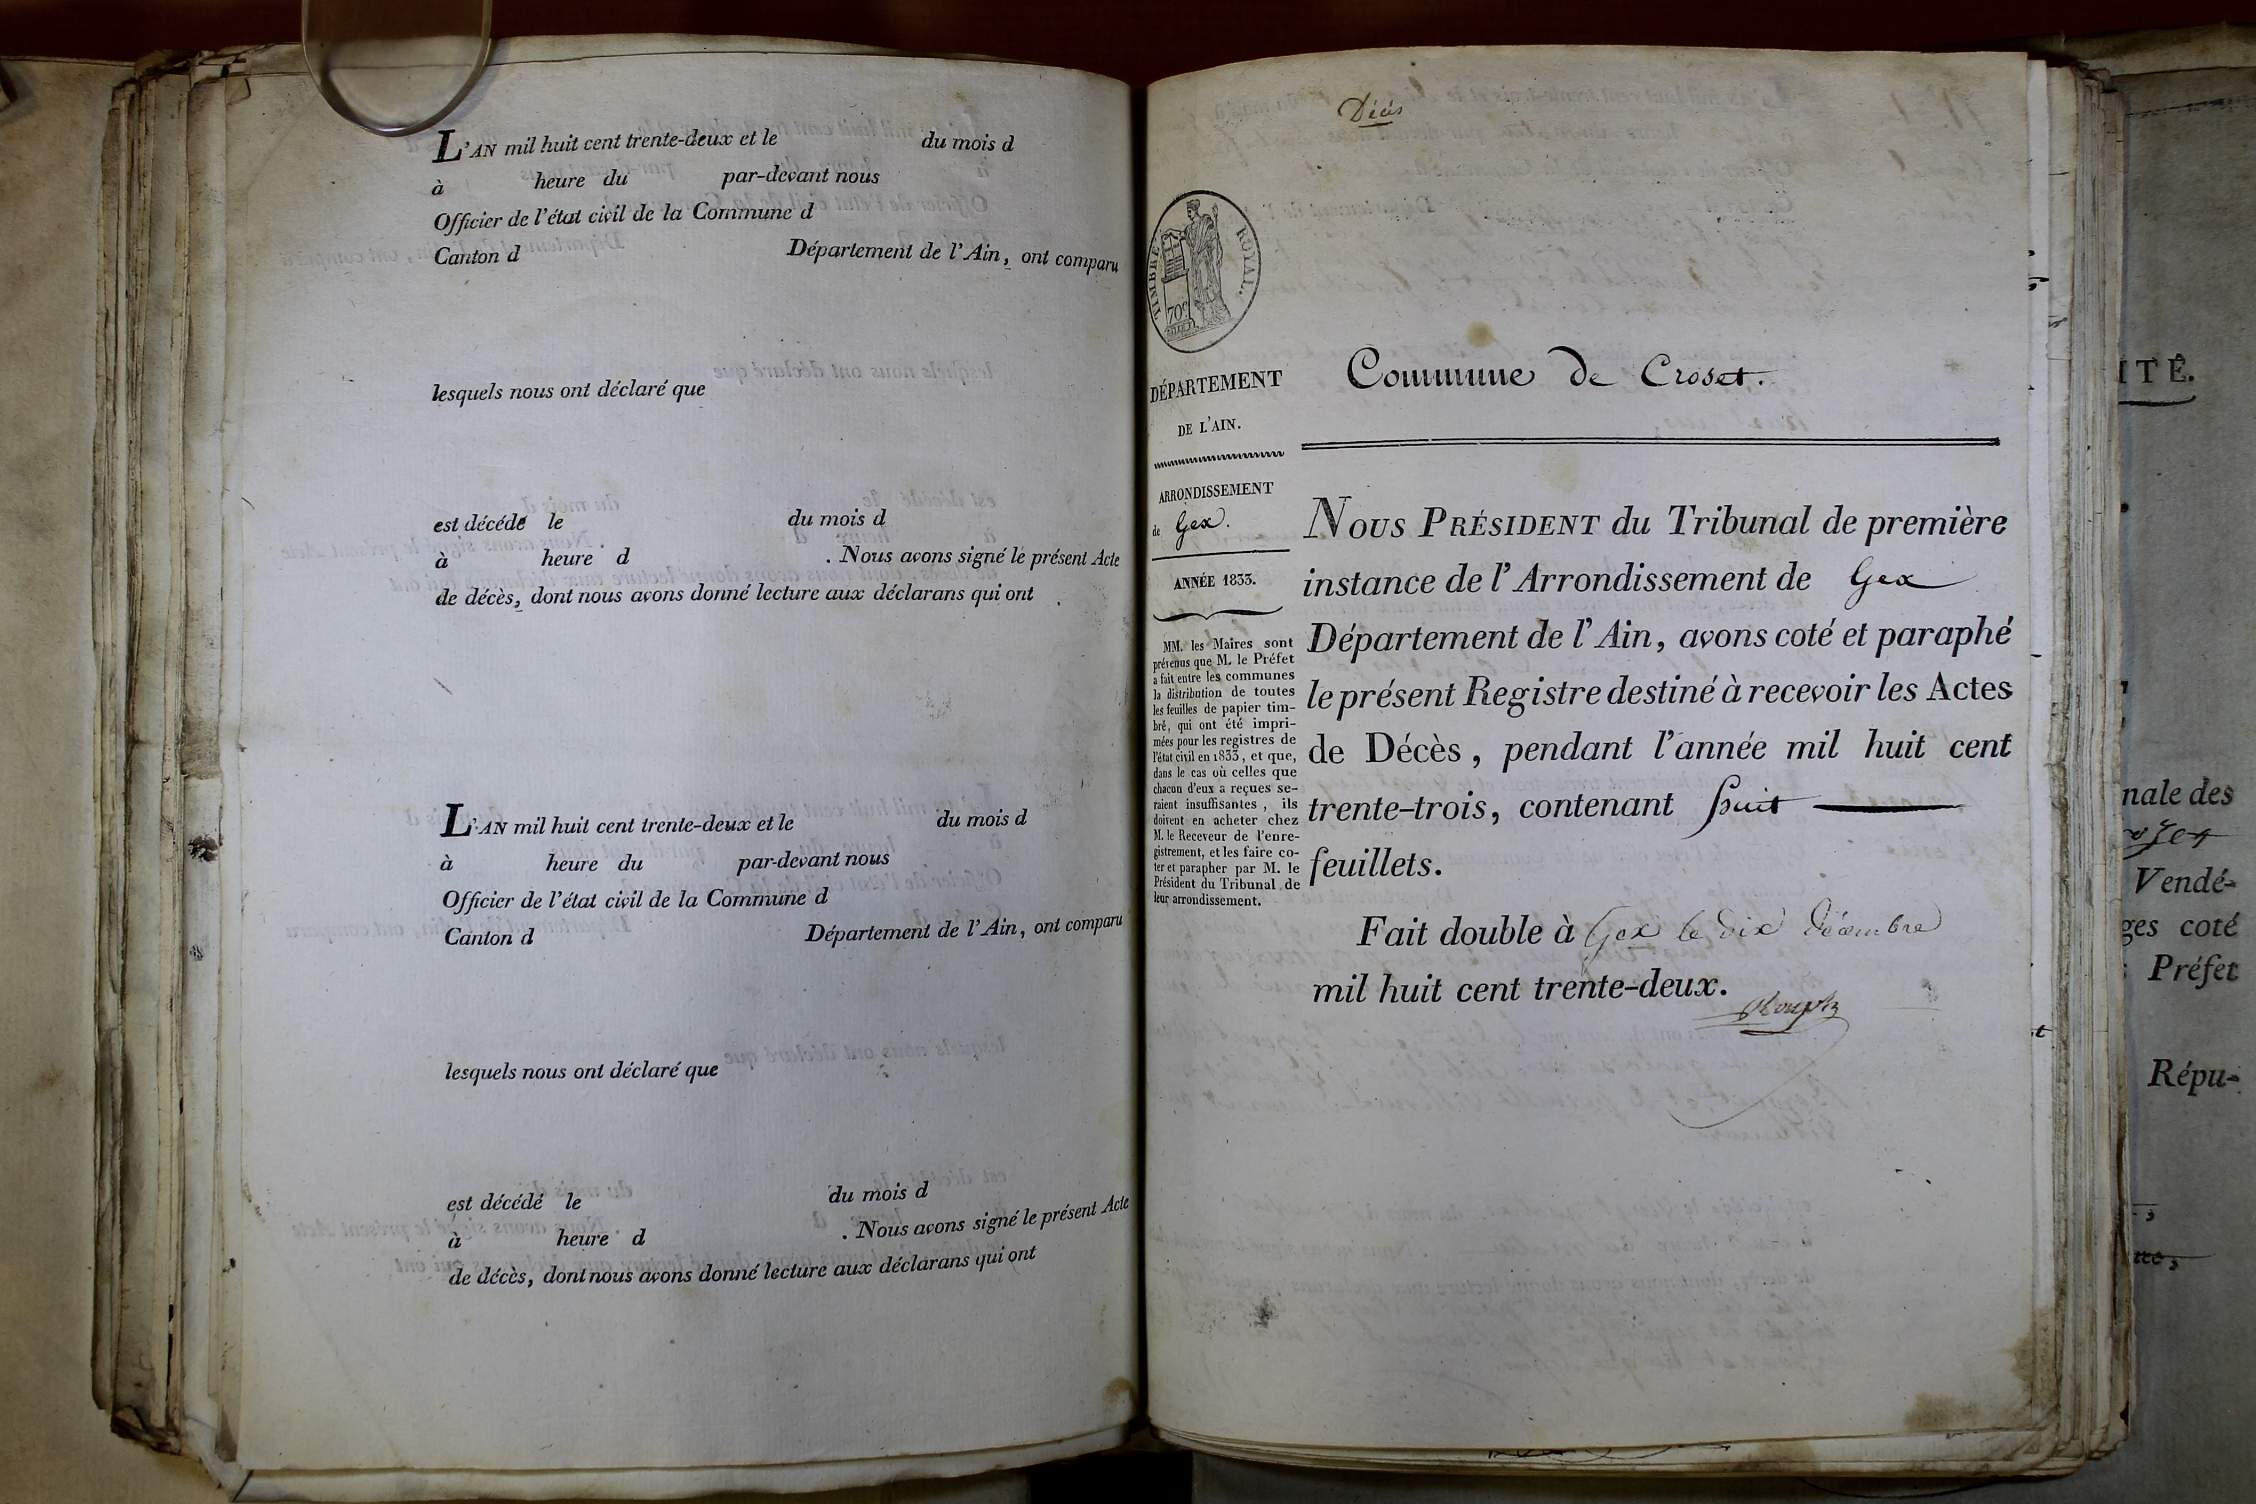 L'AN mil huit cent trente-deux et le du mois d
à heure du par-devant nous
Officier de l'état civil de la Commune d
Canton d Département de l'Ain, ont comparu
lesquels nous ont déclaré que
est décédé le du mois d
à heure d . Nous avons signé le présent Acte
de décès, dont nous avons donné lecture aux déclarans qui ont
L'AN mil huit cent trente-deux et le du mois d
à heure du par-devant nous
Officier de l'état civil de la Commune d
Canton d Département de l'Ain, ont comparu
lesquels nous ont déclaré que
est décédé le du mois d
à heure d . Nous avons signé le présent Acte
de décès, dont nous avons donné lecture aux déclarans qui ont
Décès
TIMBRE ROYAL.
70c
DÉPARTEMENT
DE L'AIN.
ARRONDISSEMENT
de Gex.
ANNÉE 1833.
MM. les Maires sont
prévenus que M. le Préfet
a fait entre les communes
la distribution de toutes
les feuilles de papier tim-
bré, qui ont été impri-
mées pour les registres de
l'état civil en 1833, et que,
dans le cas où celles que
chacun d'eux a reçues se-
raient insuffisantes, ils
doivent en acheter chez
M. le Receveur de l'enre-
gistrement, et les faire co-
ter et parapher par M. le
Président du Tribunal de
leur arrondissement.
Commune de Croset.
NOUS PRÉSIDENT du Tribunal de première
instance de l'Arrondissement de Gex
Département de l'Ain, avons coté et paraphé
le présent Registre destiné à recevoir les Actes
de Décès, pendant l'année mil huit cent
trente-trois, contenant huit
feuillets.
Fait double à Gex le dix décembre
mil huit cent trente-deux.
ITÉ.
nale des
Vendé-
ges coté
Préfet
Répu-